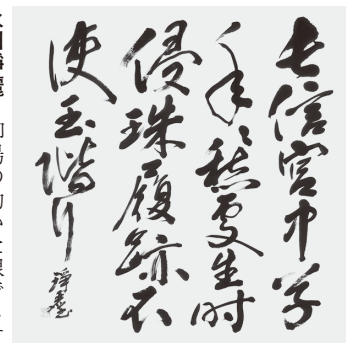 長信宮中草
年々愁處生時
侵珠履跡不
使玉階行